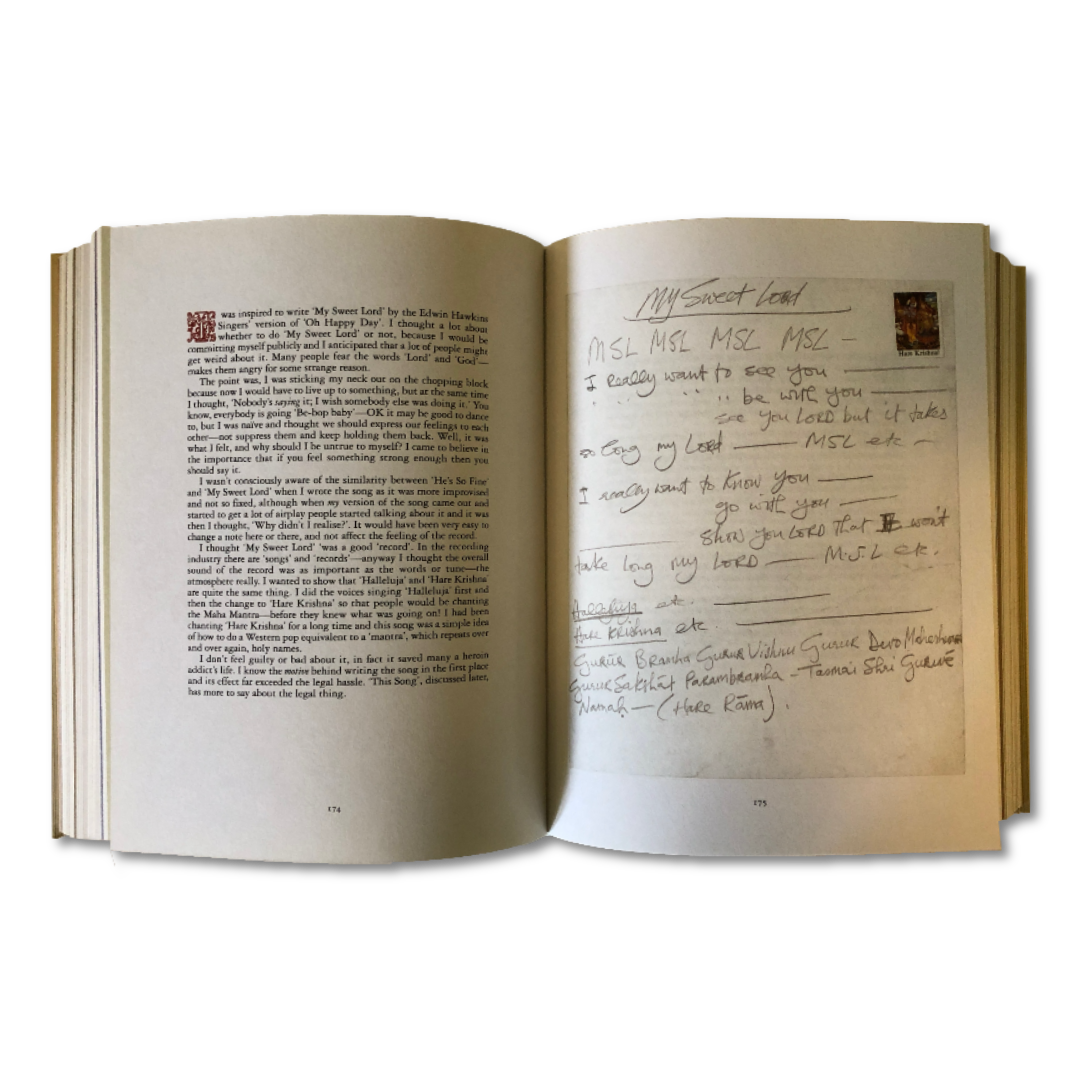 I was inspired to write 'My Sweet Lord' by the Edwin Hawkins
Singers' version of 'Oh Happy Day'. I thought a lot about
whether to do 'My Sweet Lord' or not, because I would be
committing myself publicly and I anticipated that a lot of people might
get weird about it. Many people fear the words 'Lord' and 'God'—
makes them angry for some strange reason.
The point was, I was sticking my neck out on the chopping block
because now I would have to live up to something, but at the same time
I thought, 'Nobody's saying it; I wish somebody else was doing it.' You
know, everybody is going 'Be-bop baby'—OK it may be good to dance
to, but I was naïve and thought we should express our feelings to each
other—not suppress them and keep holding them back. Well, it was
what I felt, and why should I be untrue to myself? I came to believe in
the importance that if you feel something strong enough then you
should say it.
I wasn't consciously aware of the similarity between 'He's So Fine'
and 'My Sweet Lord' when I wrote the song as it was more improvised
and not so fixed, although when my version of the song came out and
started to get a lot of airplay people started talking about it and it was
then I thought, 'Why didn't I realise?'. It would have been very easy to
change a note here or there, and not affect the feeling of the record.
I thought 'My Sweet Lord' 'was a good 'record'. In the recording
industry there are 'songs' and 'records'—anyway I thought the overall
sound of the record was as important as the words or tune—the
atmosphere really. I wanted to show that 'Halleluja' and 'Hare Krishna'
are quite the same thing. I did the voices singing 'Halleluja' first and
then the change to 'Hare Krishna' so that people would be chanting
the Maha Mantra—before they knew what was going on! I had been
chanting 'Hare Krishna' for a long time and this song was a simple idea
of how to do a Western pop equivalent to a 'mantra', which repeats over
and over again, holy names.
I don't feel guilty or bad about it, in fact it saved many a heroin
addict's life. I know the motive behind writing the song in the first place
and its effect far exceeded the legal hassle. 'This Song', discussed later,
has more to say about the legal thing.
174
My Sweet Lord
Hare Krishna
MSL MSL MSL MSL —
I Really want to see you ———
" " " " be with you ———
see you LORD but it takes
so long my Lord ——— MSL etc —
I really want to Know you ———
go with you ———
——— show you LORD that it won't
take long my LORD ——— M.S.L etc.
Halleluja etc. ———
Hare Krishna etc. ———
Gurūr Bramha Gurur Vishnu Gurur Devo Maheshwara
Gurur Sakshāt Parambramha – Tasmai Shri Guruve
Namah — (Hare Rāma).
175